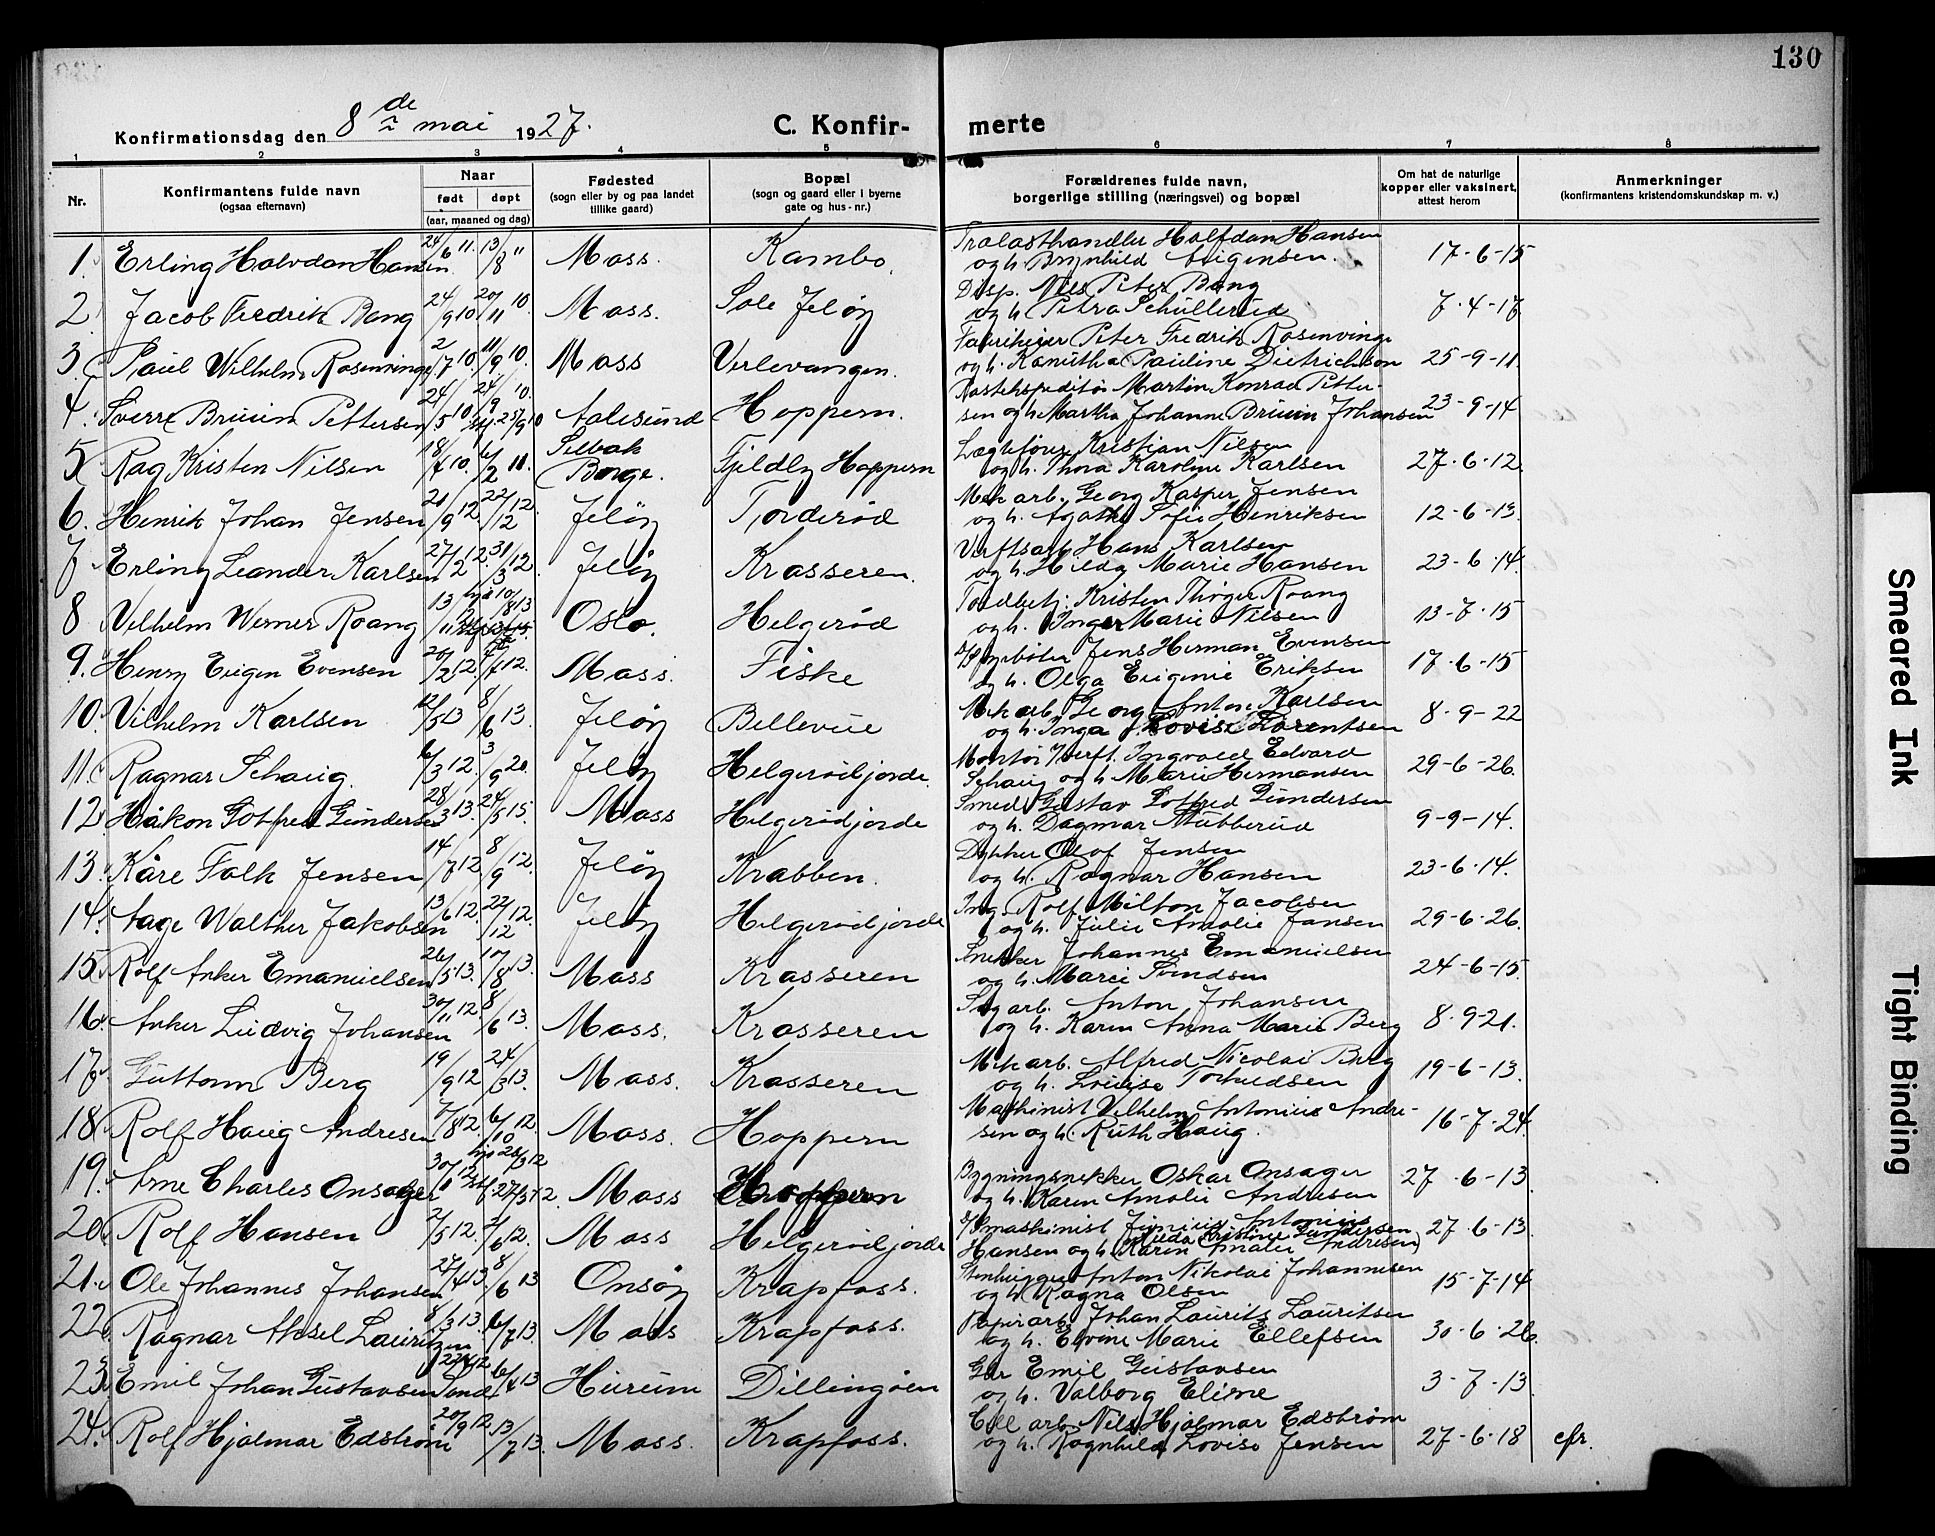 130
Konfirmationsdag den 8de mai 1927.
C. Konfir- merte
1 2 3 4 5 6 7 8
Nr.
Konfirmantens fulde navn
(ogsaa efternavn)
Naar
født døpt
(aar, maaned og dag)
Fødested
(sogn eller by og paa landet
tillike gaard)
Bopæl
(sogn og gaard eller i byerne
gate og hus-nr.)
Forældrenes fulde navn,
borgerlige stilling (næringsvei) og bopæl
Om hat de naturlige
kopper eller vaksinert,
attest herom
Anmerkninger
(konfirmantens kristendomskundskap m. v.)
1. Erling Halvdan Hansen 24/6 11. 13/8 11 Moss. Kambo. Trælasthandler Halfdan Hansen
og h. Brynhild 17-6-15
2. Jacob Fredrik Bang 24/9 10 20/11 10 Moss. Sole Jeløy Disp. Nils Peter Bang
og h. Petra Schüllerud 7.4-17
3. Paul Wilhelm Rosenvinge 2/7 10. 11/9 10. Moss Verlevangen. Peter Fredrik Rosenvinge
og h. Kanutha Pauline Dietrichson 25-9-11.
4. Sverre Bruun Pettersen 24/5 10 Aalesund Hoppern. Postekspeditør Martin Konrad Petter-
sen og h. Martha Johanne Bruun Johansen 23-9-14
5. Rag Kristen Nilsen 18/7 10. 6/2 11. Selbak
Borge. Fjeldly Hoppern Kristian Nilsen
og h. Thora Karoline Karlsen 27.6-12.
6. Henrik Johan Jensen 20/9 12 22/12 12. Jeløy Tjorderød Mek arb. Georg Kasper Jensen
og h. Agathe Sofie Henriksen 12-6-13.
7. Erling Leander Karlsen 27/2 12. 31/3 12 Jeløy Krasseren. Verftsarb. Hans Karlsen
og h. Hilda Marie Hansen 23-6-14.
8 Vilhelm Werner Roang 13/11 Oslo. Helgerød Kristen Thøger Roang
og h. Inger Marie Nilsen 13-7-15
9. Henry Eugen Evensen 20/2 12. Moss. Fiske Jens Herman Evensen
og h. Olga Eugenie Eriksen 17-6-15
10. Vilhelm Karlsen 12/5 13 8/6 13. Jeløy Bellevue Mek arb. Georg Anton Karlsen
og h. Inga Lovise Larentsen 8-9-22
11. Ragnar Schaug. 6/3 12. 3/9 20. Jeløy Helgerødjorde. Montør Ingvald Edvard
Schaug og h. Marie Hermansen 29-6-26.
12. Håkon Gotfred Gundersen 28/3 13. 24/5 15. Moss Helgerødjorde Smed Gustav Gotfred Gundersen
og h. Dagmar Stubberud 9-9-14.
13. Kåre Falk Jensen 14/7 12. 8/9 12. Jeløy Krabben. Dykker Olof Jensen
og h. Ragnar Hansen 23-6-14.
14. Aage Walther Jakobsen 13/6 12. 22/12 12. Jeløy Helgerødjorde Ing. Rolf Milton Jacobsen
og h. Julie Amalie Jansen 29-6-26.
15. Rolf Anker Emanuelsen 26/5 13. 10/8 13. Moss Krasseren Snekker Johannes Emanuelsen
og h. Marie Svendsen 24-6-15.
16. Anker Ludvig Johansen 30/11 12. 8/6 13. Moss. Krasseren Anton Johansen
og h. Karen Anna Marie Berg 8.9-21.
17. Guttorm Berg 19/9 12 24/3 13. Moss. Krasseren Mek arb. Alfred Nicolai Berg
og h. Louise 19-6-13.
18. Rolf Haug Andresen 7/8 12. 6/10 12. Moss. Hoppern Maskinist Vilhelm Antonius Andre-
sen og h. Ruth Haug. 16-7-24.
19. Arne Charles Onsager Moss Hoppern Bygningsnekker Oskar Onsager
og h. Karen Amalie Andresen 27.6-13.
20. Rolf Hansen 2/5 12. 2/6 12. Moss Helgerødjorde Junius Antonius
Hansen og h. Hilda Kristine Gundersen (Karen Amalie Andresen) 27.6-13.
21. Ole Johannes Johansen 27/4 13. 8/6 13 Onsøy Krapfoss. Stenhugger Anton Nikolai Johannesen
og h. Ragna Olsen 15-7-14
22. Ragnar Aksel Lauritzen 8/3 13. 6/7 13. Moss Krapfoss. Papirarb. Johan Laurits Lauritsen
og h. Elvine Marie Ellefsen 30-6-26.
23. Emil Johan Gustavsen 6/4 13 Hurum Dillingøen Emil Gustavsen
og h. Valborg Eline 3-7-13.
24. Rolf Hjalmar Edstrøm 20/9 12 13/7 13. Moss. Krapfoss. Cell arb. Nils Hjalmar Edstrøm
og h. Ragnhild Lovise Jensen 27-6-18 cfr.
Smeared Ink
Tight Binding